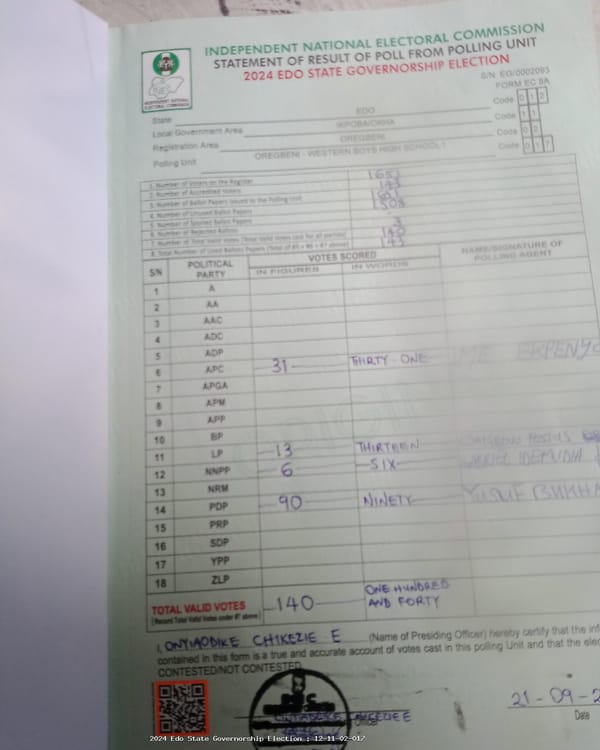 INDEPENDENT NATIONAL ELECTORAL COMMISSION
STATEMENT OF RESULT OF POLL FROM POLLING UNIT
2024 EDO STATE GOVERNORSHIP ELECTION
S/N: EG/0002093
FORM EC 8A
INDEPENDENT NATIONAL ELECTORAL COMMISSION
State EDO Code 0 1 2
Local Government Area IKPOBA/OKHA Code 1 1
Registration Area OREGBENI Code 0 2
Polling Unit OREGBENI - WESTERN BOYS HIGH SCHOOL I Code 0 1 7
1. Number of Voters on the Register
2. Number of Accredited Voters 143
3. Number of Ballot Papers Issued to the Polling Unit
4. Number of Unused Ballot Papers
5. Number of Spoiled Ballot Papers
6. Number of Rejected Ballots 3
7. Number of Total Valid Votes (Total Valid Votes cast for all parties) 140
8. Total Number of Used Ballot Papers (Total of #5 + #6 + #7 above) 143
SN POLITICAL PARTY VOTES SCORED NAME/SIGNATURE OF POLLING AGENT
IN FIGURES IN WORDS
1 A
2 AA
3 AAC
4 ADC
5 ADP
6 APC 31 THIRTY-ONE
7 APGA
8 APM
9 APP
10 BP
11 LP 13 THIRTEEN
12 NNPP 6 SIX
13 NRM
14 PDP 90 NINETY YUSUF
15 PRP
16 SDP
17 YPP
18 ZLP
TOTAL VALID VOTES 140 ONE HUNDRED AND FORTY
(Record Total Valid Votes under #7 above)
I, ONYIAODIKE CHIKEZIE E (Name of Presiding Officer) hereby certify that the
contained in this form is a true and accurate account of votes cast in this polling Unit and that the
CONTESTED/NOT CONTESTED
21-09-2
Date
2024 Edo State Governorship Election : 12-11-02-017